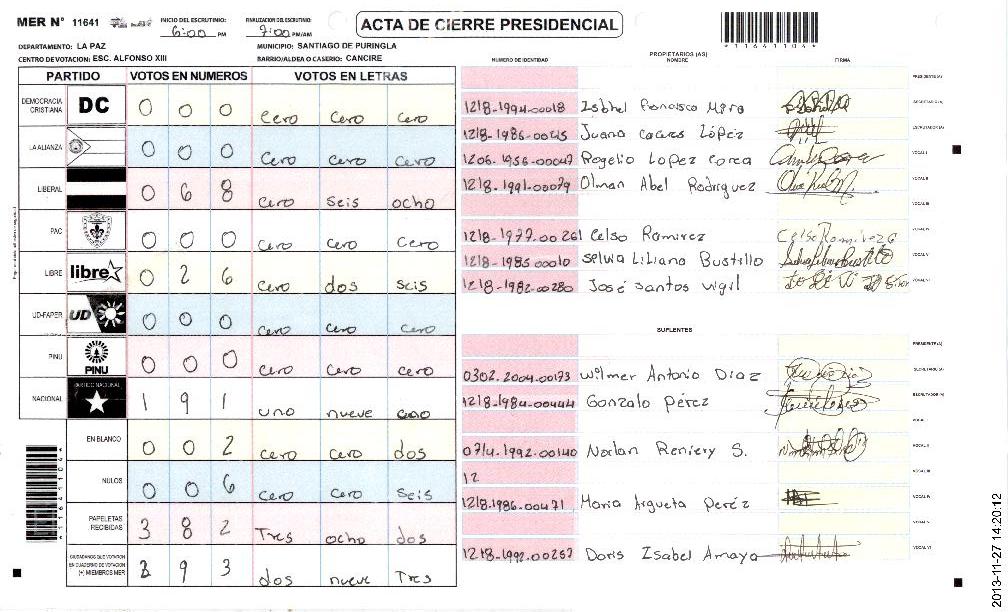 MER N° 11641
INICIO DEL ESCRUTINIO: 6:00 PM
FINALIZACION DEL ESCRUTINIO: 7:00 PM/AM
ACTA DE CIERRE PRESIDENCIAL
*11641104*
DEPARTAMENTO: LA PAZ
MUNICIPIO: SANTIAGO DE PURINGLA
CENTRO DE VOTACION: ESC. ALFONSO XIII
BARRIO/ALDEA O CASERIO: CANCIRE
PARTIDO VOTOS EN NUMEROS VOTOS EN LETRAS
DEMOCRACIA CRISTIANA DC 0 0 0 cero cero cero
LA ALIANZA 0 0 0 cero cero cero
LIBERAL 0 6 8 cero seis ocho
PAC 0 0 0 cero cero cero
LIBRE libre 0 2 6 cero dos seis
UD-FAPER UD 0 0 0 cero cero cero
PINU PINU 0 0 0 cero cero cero
NACIONAL PARTIDO NACIONAL 1 9 1 uno nueve
EN BLANCO 0 0 2 cero cero dos
NULOS 0 0 6 cero cero seis
PAPELETAS RECIBIDAS 3 8 2 Tres ocho dos
CIUDADANOS QUE VOTARON EN CUADERNO DE VOTACION (+) MIEMBROS MER 9 3 dos nueve Tres
*11641104*
NUMERO DE IDENTIDAD PROPIETARIOS (AS) NOMBRE FIRMA
PRESIDENTE(A)
1218-1994-00018 Isabel Francisco SECRETARIO(A)
1218-1986-00145 Juana Caceres López ESCRUTADOR(A)
1206-1956-00047 Rogelio Lopez Corea VOCAL I
1218-1991-00079 Olman Abel Rodriguez VOCAL II
VOCAL III
1218-1977-00261 Celso Ramirez Celso Ramirez VOCAL IV
1218-1985-00010 Selvia Liliana Bustillo VOCAL V
1218-1982-00280 José santos vigil VOCAL VI
SUPLENTES
PRESIDENTE(A)
0302-2004-00173 Wilmer Antonio Diaz SECRETARIO(A)
1218-1984-00444 Gonzalo Pérez ESCRUTADOR(A)
VOCAL I
0714-1992-00140 Norlan Reniery S. VOCAL II
12 VOCAL III
1218-1986-00471 Maria Argueta Peréz VOCAL IV
VOCAL V
1218-1992-00257 Doris Isabel Amaya VOCAL VI
2013-11-27 14:20:12